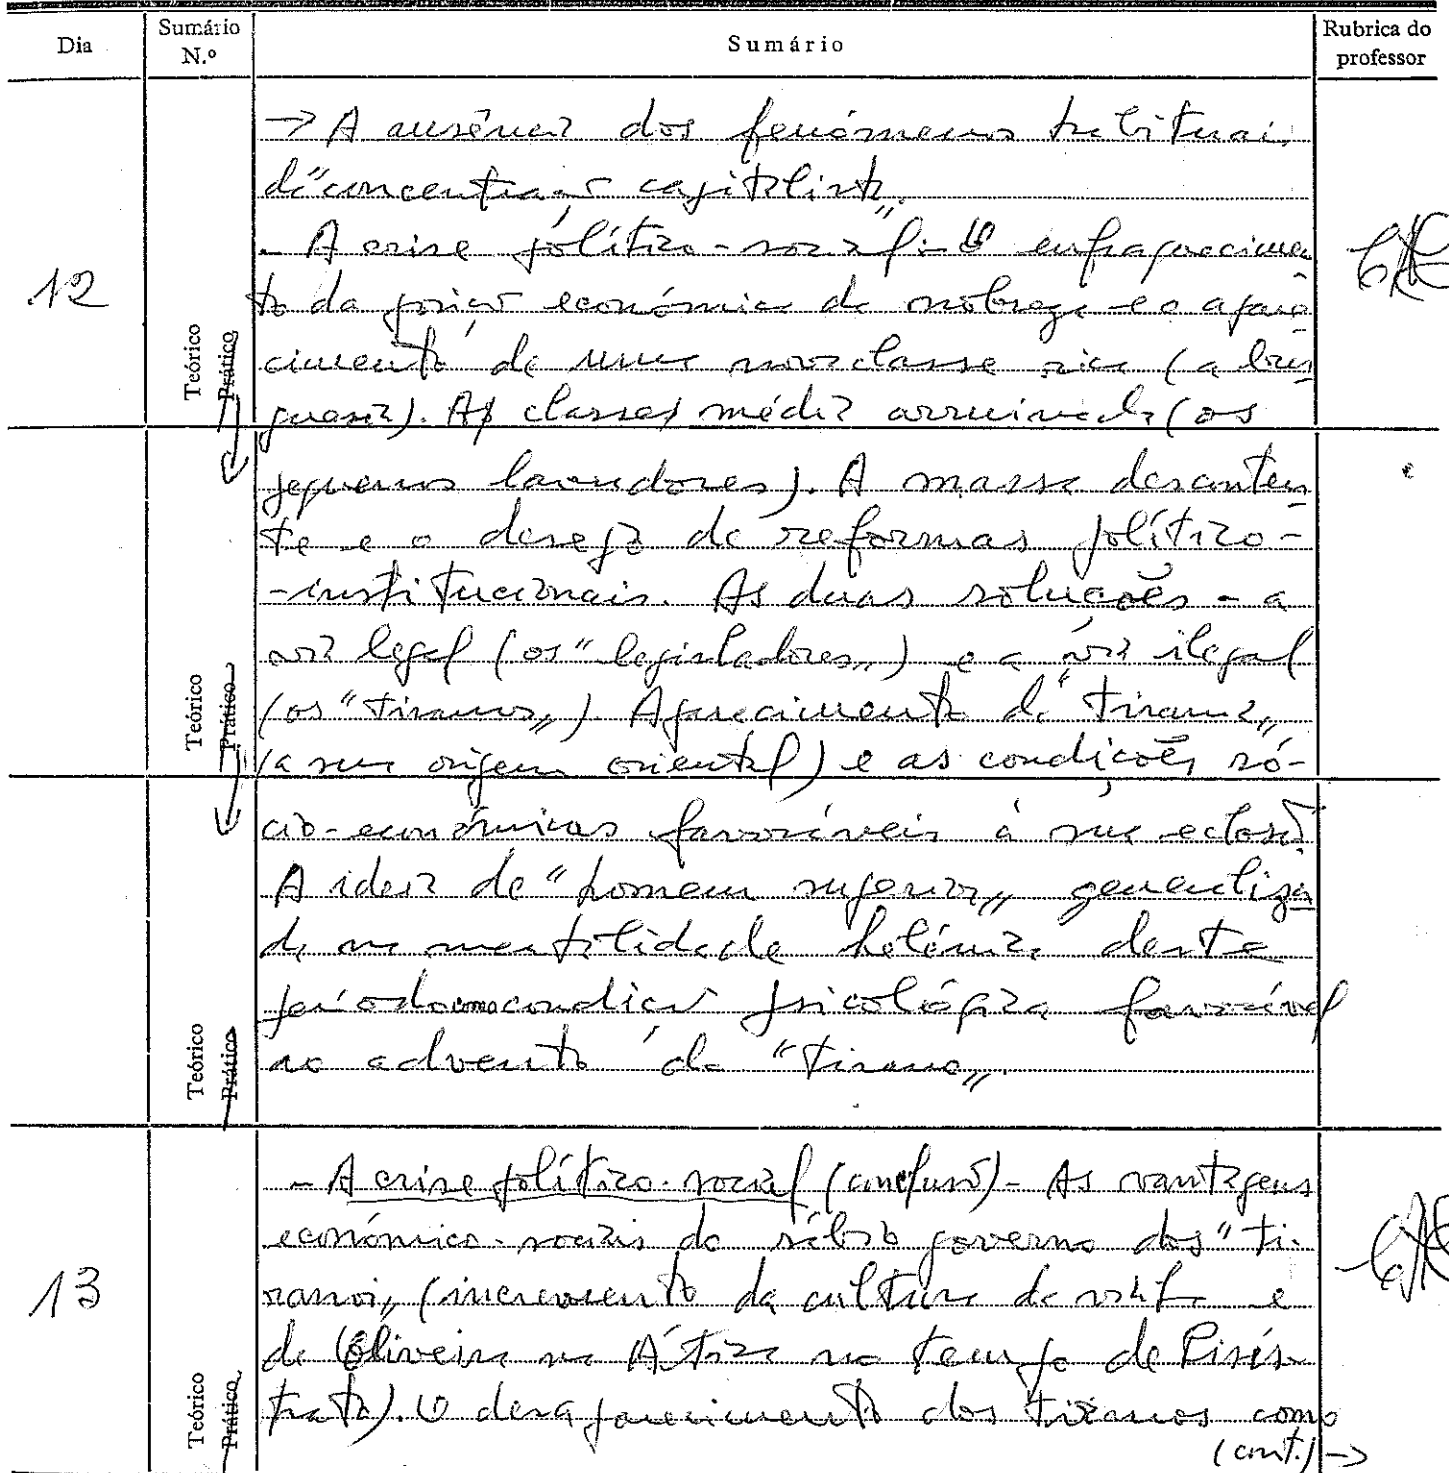 Dia
Sumário
N.º
Sumário
Rubrica do
professor
→ A ausência dos fenómenos habituais
de "concentração capitalista„.
12
- A crise político-social - O enfraquecimen
to da posição económica da nobreza e o apare
cimento de uma nova classe rica (a bur
guesia). As classes média arruinada (os
Teórico
Prático
pequenos lavradores). A massa desconten
te e o desejo de reformas político-
-institucionais. As duas soluções - a
via legal (os "legisladores„) e a via ilegal
(os "tiranos„). Aparecimento da "tirania„
(a sua origem oriental) e as condições só-
Teórico
Prático
cio-económicas favoráveis à sua eclosão.
A ideia de "homem superior„ generaliza
da na mentalidade helénica deste
período como condição psicológica favorável
ao advento do "tirano„.
Teórico
Prático
13
- A crise político-social (conclusão) - As vantagens
económico-sociais do sábio governo dos "ti-
ranos„ (incremento da cultura da vinha e
da Oliveira na Ática no tempo de Pisís-
trato). O desaparecimento dos tiranos como
(cont.) →
Teórico
Prático